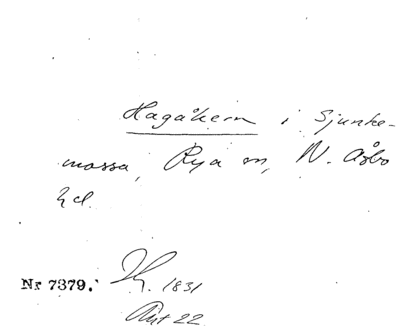 Hagåkern i Sjunke-
mossa, Rya sn, N. Åsbo
hd.
Nr 7379. 1831
22